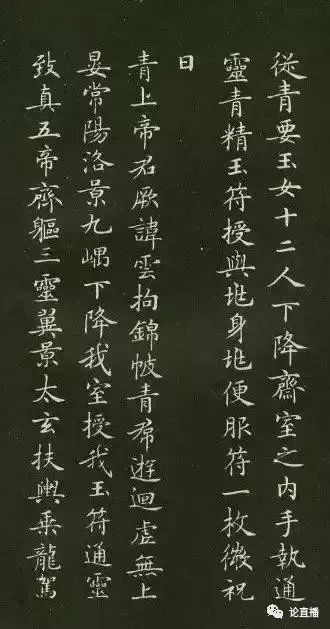 從青要玉女十二人下降齋室之内手執通
靈青精玉符授與地身地便服符一枚微祝
曰
青上帝君厥諱雲拘錦帔青帬遊迴虛無上
晏常陽洛景九嵎下降我室授我玉符通靈
致真五帝齊軀三靈翼景太玄扶輿乗龍駕
论直播